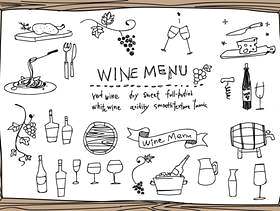 WINE MENU
red wine dry sweet full-bodied
white wine acidity smooth texture tannic
Wine Menu